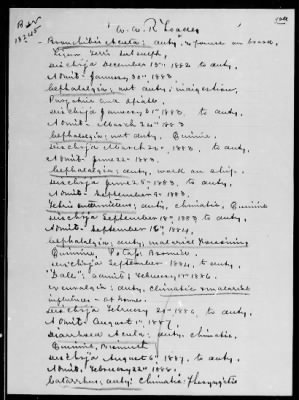 W. W. R Leader
Bronchitis Acuta; duty; exposure on board,
Discharged December 13th 1882 to duty,
Admit- January 30th 1883.
Cephalalgia; not duty; indigestion,
Discharged January 31st 1883, to duty,
Admit- March 22nd 1883
Cephalalgia; not duty. Quinine.
Discharged March 23rd, 1883, to duty,
Admit- June 22nd 1883.
Cephalalgia; duty, work on ship.
Discharged June 25th 1883, to duty,
Admit September 9, 1883,
Febris Intermittens; duty, climatic, Quinine
Discharged September 18th 1883 to duty,
Admit. September 16th, 1884,
Cephalalgia; duty; malarial Poisoning
Quinine, Potass Bromide.
Discharged September 1884, to duty,
"Dale"; admit; February 1st 1886.
Neuralgia; duty, climatic & malarial
influences - at home.
Discharged February 24th 1886, to duty,
Admit- August 1st 1887,
Diarrhoea Acuta; duty; climatic,
Quinine, Bismuth
Discharged August 6th 1887, to duty,
Admit, February 22nd 1888,
Catarrhus; duty; climatic;